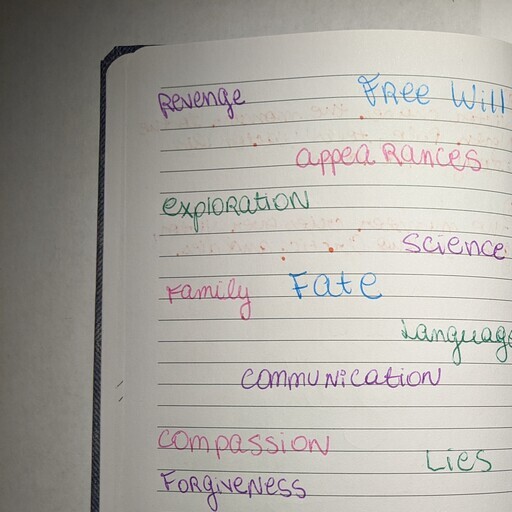 Revenge Free Will
appearances
exploration
science
Family Fate
Language
communication
compassion
Lies
Forgiveness